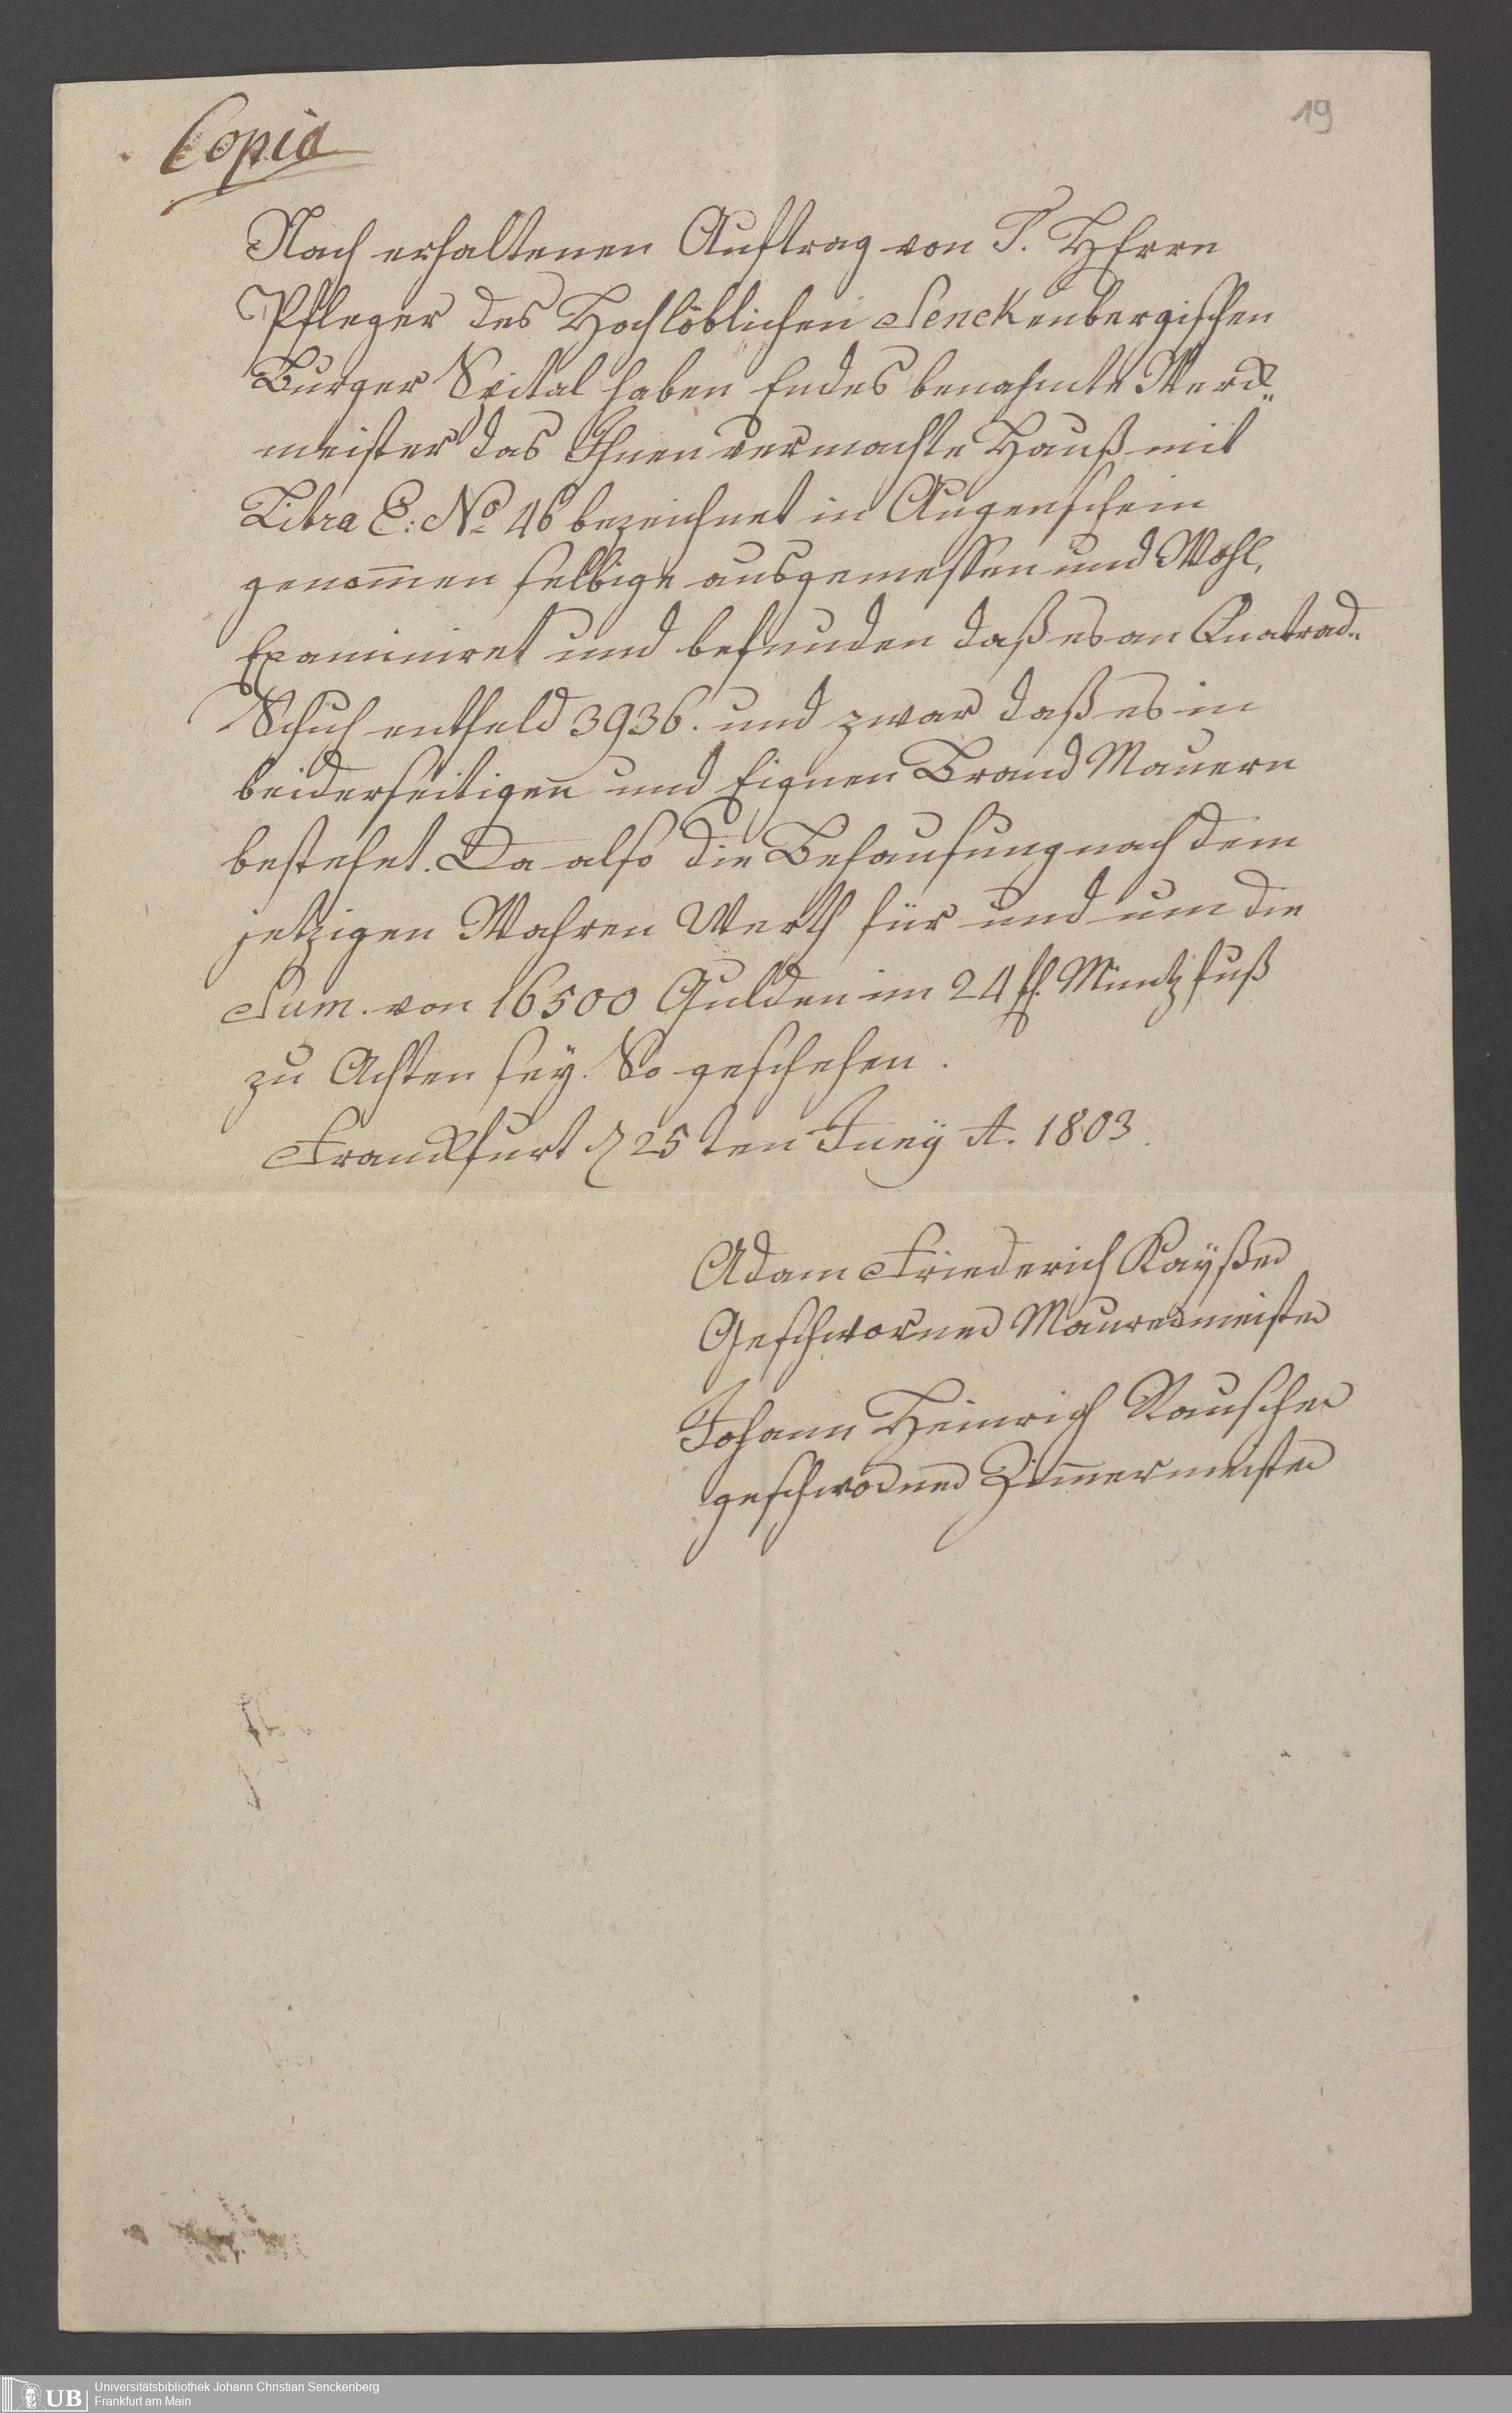 19
Copia
Nach erhaltenen Auftrag von T. HErrn
Pfleger des Hochlöblichen Senckenbergischen
Burger Spital haben Endes benahmte Werck„
meister das Ihnen vermachte Hauß mit
Litra E: No 46 bezeichnet in Augenschein
genom̄en selbige ausgemessen und Wohl,
Examiniret und befunden daß es an Quatrad„
Schuh entheld 3936. und zwar daß es in
beiderseitigen und Eignen Brand Mauern
bestehet. Da also die Behausung nach dem
jetzigen Wahren Werth für und um die
Sum. von 16500 Gulden im 24 fl. Müntzfuß
zu Achten seÿ. So geschehen.
Franckfurt d 25ten Juny A. 1803.
Adam Friederich Kayßer
Geschworner Maurermeister
Johann Heinrich Rauscher
geschworner Zim̄ermeister
UB
Universitätsbibliothek Johann Christian Senckenberg
Frankfurt am Main